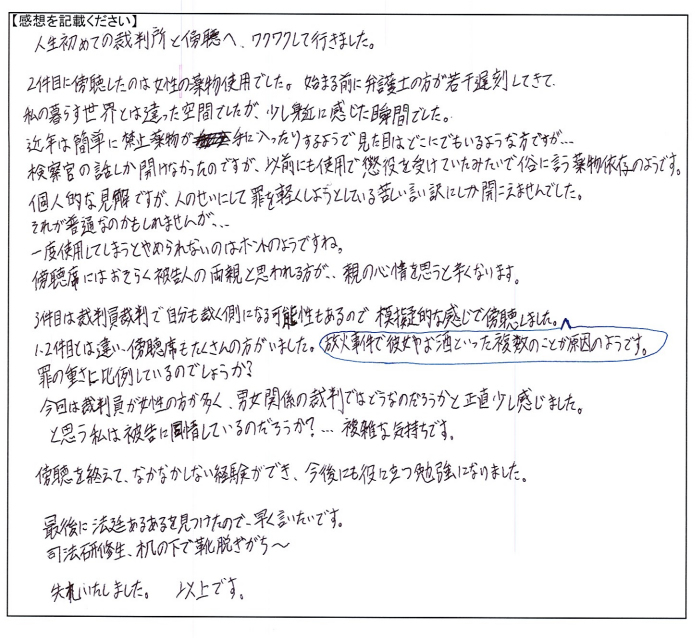 【感想を記載ください】
人生初めての裁判所と傍聴へ、ワクワクして行きました。
2件目に傍聴したのは女性の薬物使用でした。始まる前に弁護士の方が若干遅刻してきて、
私の暮らす世界とは違った空間でしたが、少し身近に感じた瞬間でした。
近年は簡単に禁止薬物が手に入ったりするようで見た目はどこにでもいるような方ですが…
検察官の話しか聞けなかったのですが、以前にも使用で懲役を受けていたみたいで俗に言う薬物依存のようです。
個人的な見解ですが、人のせいにして罪を軽くしようとしている苦しい言い訳にしか聞こえませんでした。
それが普通なのかもしれませんが、、、
一度使用してしまうとやめられないのはホントのようですね。
傍聴席にはおそらく被告人の両親と思われる方が、、親の心情を思うと辛くなります。
3件目は裁判員裁判で自分も裁く側になる可能性もあるので模擬的な感じで傍聴しました。
1、2件目とは違い、傍聴席もたくさんの方がいました。放火事件で彼女やお酒といった複数のことが原因のようです。
罪の重さに比例しているのでしょうか?
今回は裁判員が女性の方が多く、男女関係の裁判ではどうなのだろうかと正直少し感じました。
と思う私は被告に同情しているのだろうか?…複雑な気持ちです。
傍聴を終えて、なかなかしない経験ができ、今後にも役に立つ勉強になりました。
最後に法廷あるあるを見つけたので、早く言いたいです。
司法研修生、机の下で靴脱ぎがち〜
失礼いたしました。 以上です。